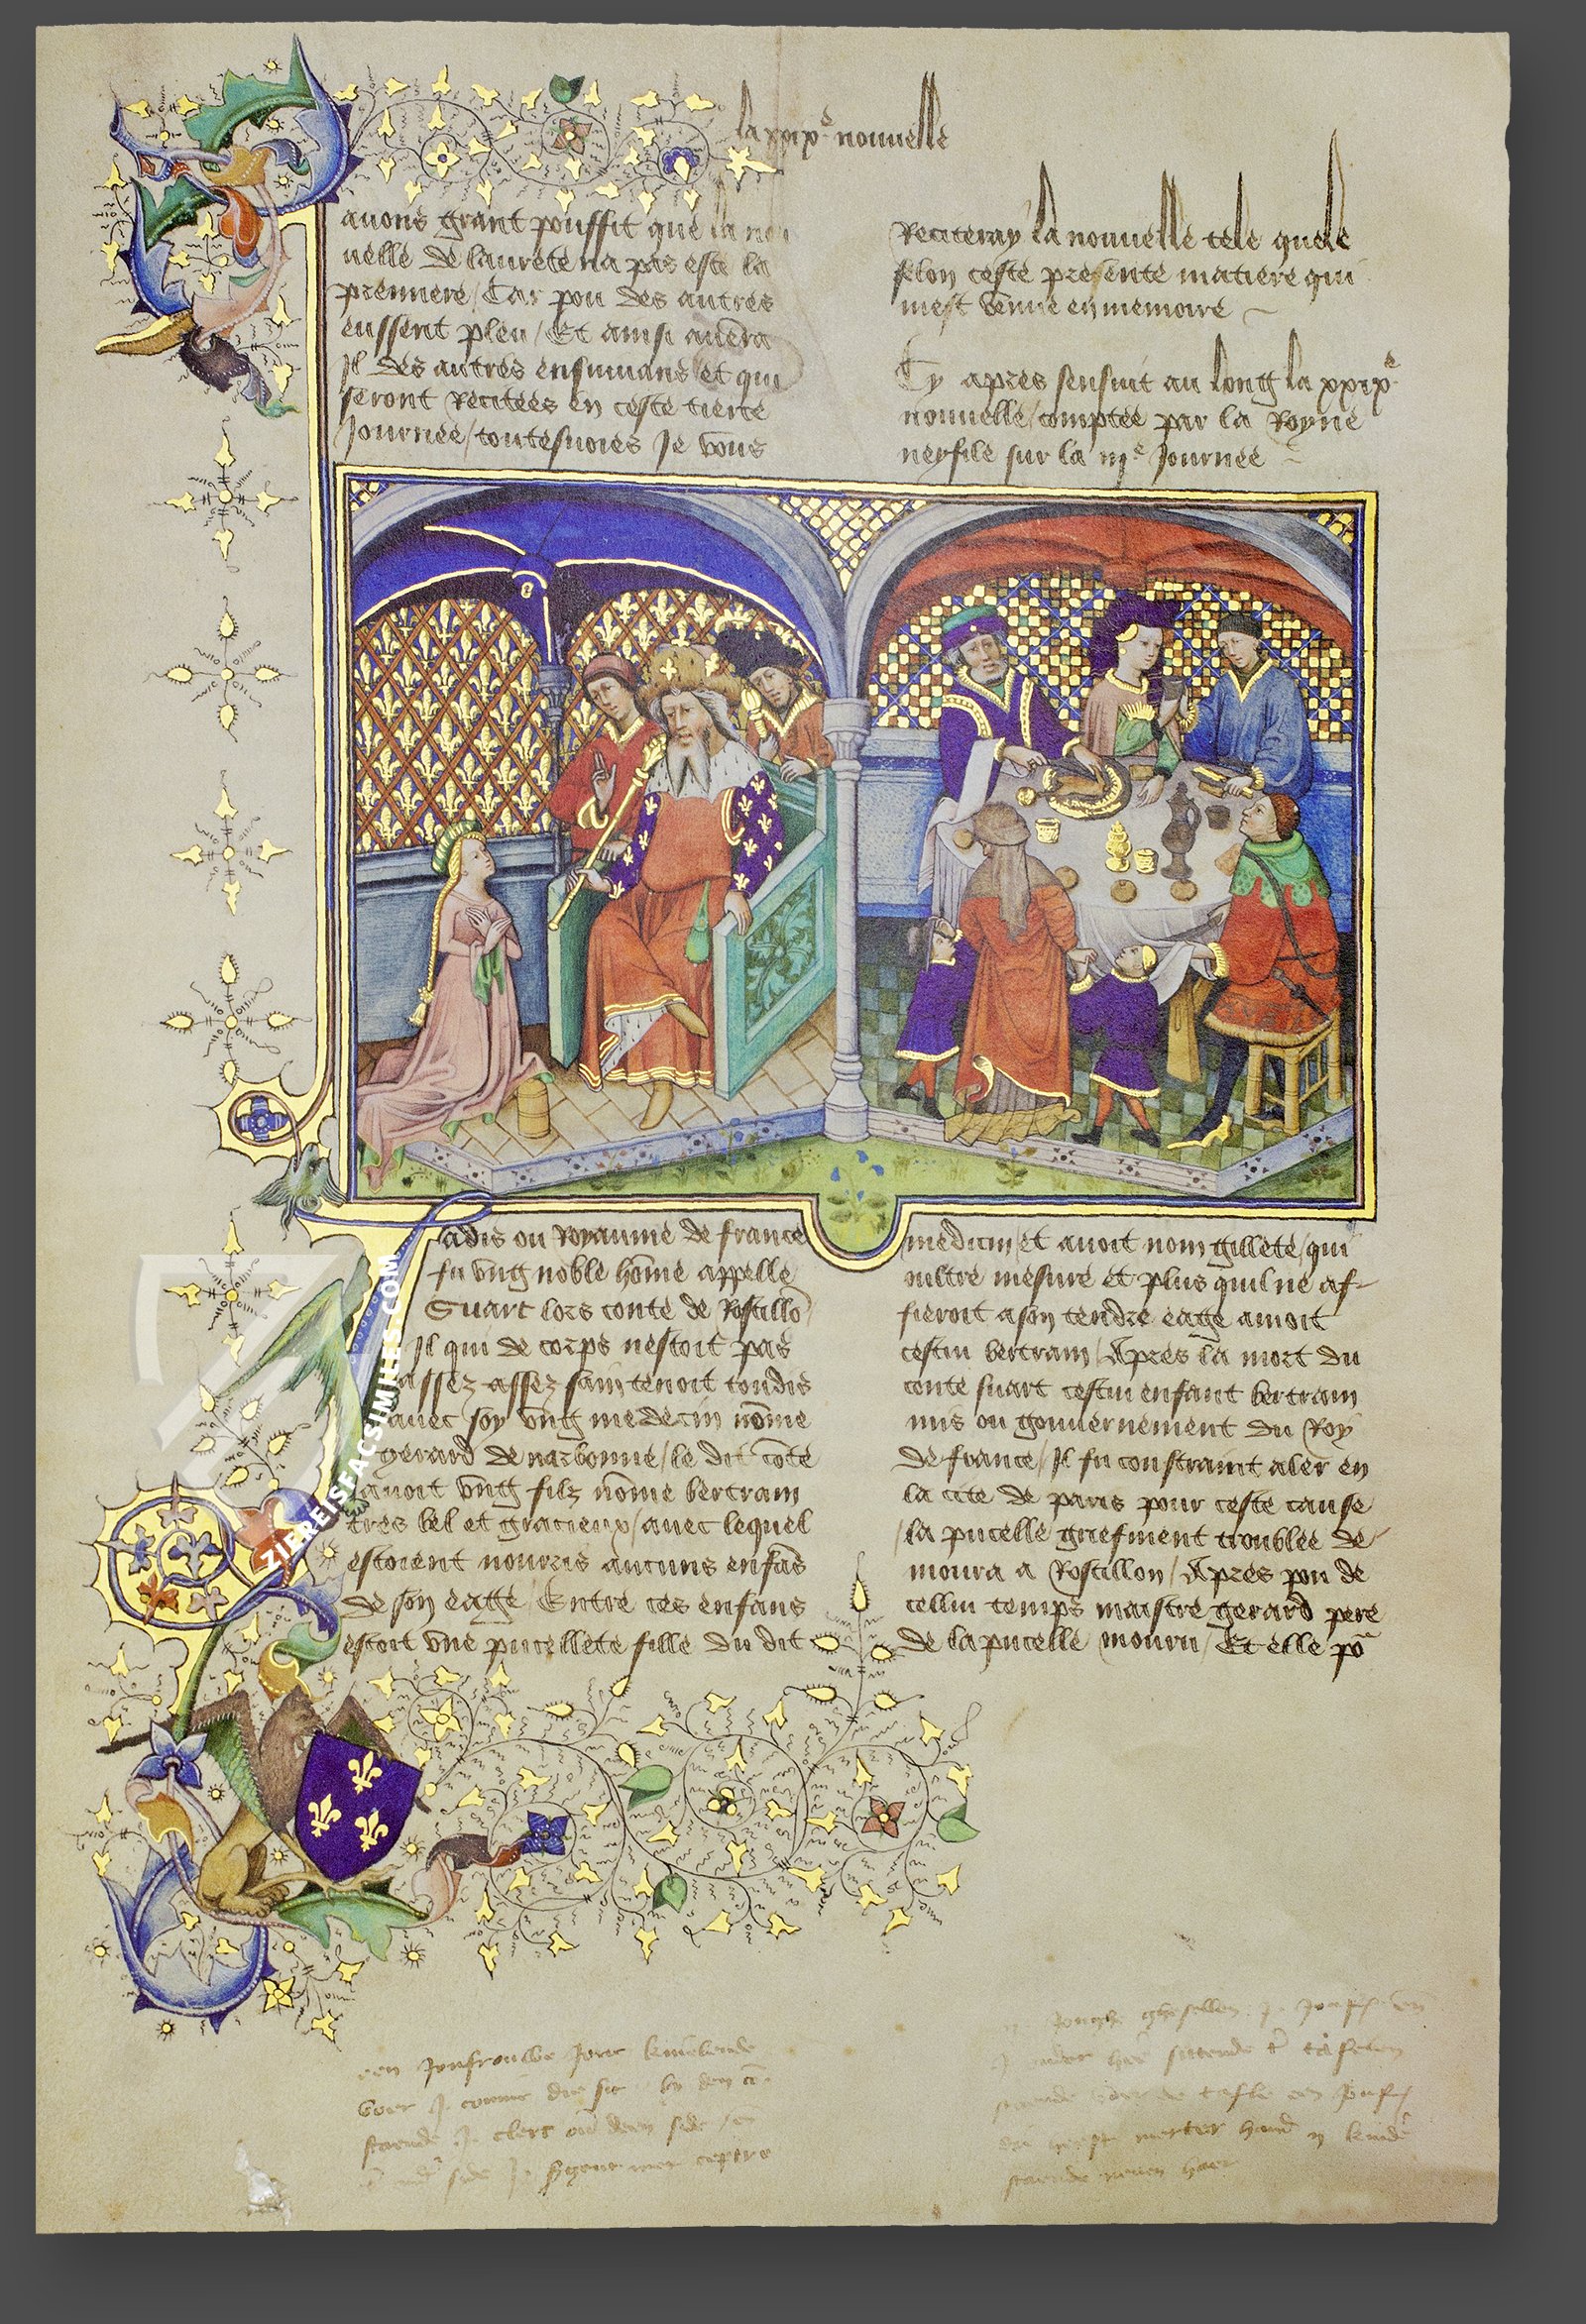 la xxix.e nouuelle
auons grant pouffit que la nou
uelle de laurete na pas este la
premiere / Car pou des autres
eussent pleu / Et ainsi auera
Il des autres ensuiuans et qui
seront Recitees en ceste tierce
Journee / toutesuoies Je vous
Reciteray la nouuelle tele quele
selon ceste presente matiere qui
mest venue en memoire
Cy apres sensuit au long la xxixe
nouuelle / comptee par la Royne
neyfile sur la iije Journee
Jadis ou Royaume de france
fu vng noble hōme appelle
Suart lors conte de Rossillō
Il qui de corps nestoit pas
assez assez sain tenoit tondis
auec soy vng medecin nōme
gerard de narbonne / le dit cōte
auoit vng filz nōme bertram
tres bel et gracieux / auec lequel
estoient nourris aucuns enfās
de son eage / Entre ces enfans
estoit vne pucellete fille du dit
medicin / et auoit nom gillete / qui
oultre mesure et plus quil ne af-
fieroit a son tendre eage amoit
cestui bertram / Apres la mort du
conte suart cestui enfant bertram
mis ou gouuernement du Roy
de france / Il fu constraint aler en
la cite de paris pour ceste cause
/ la pucelle griefment troublee de-
moura a Rossillon / Apres pou de
cellui temps maistre gerard pere
de la pucelle mouru / Et elle po
een Jonfrouwe
voer
staende J. clerc
side
Jonghe ghesellen
sittende tafelen
tafle een
kinder
staende neuen haer
ZIEREIS FACSIMILES.COM